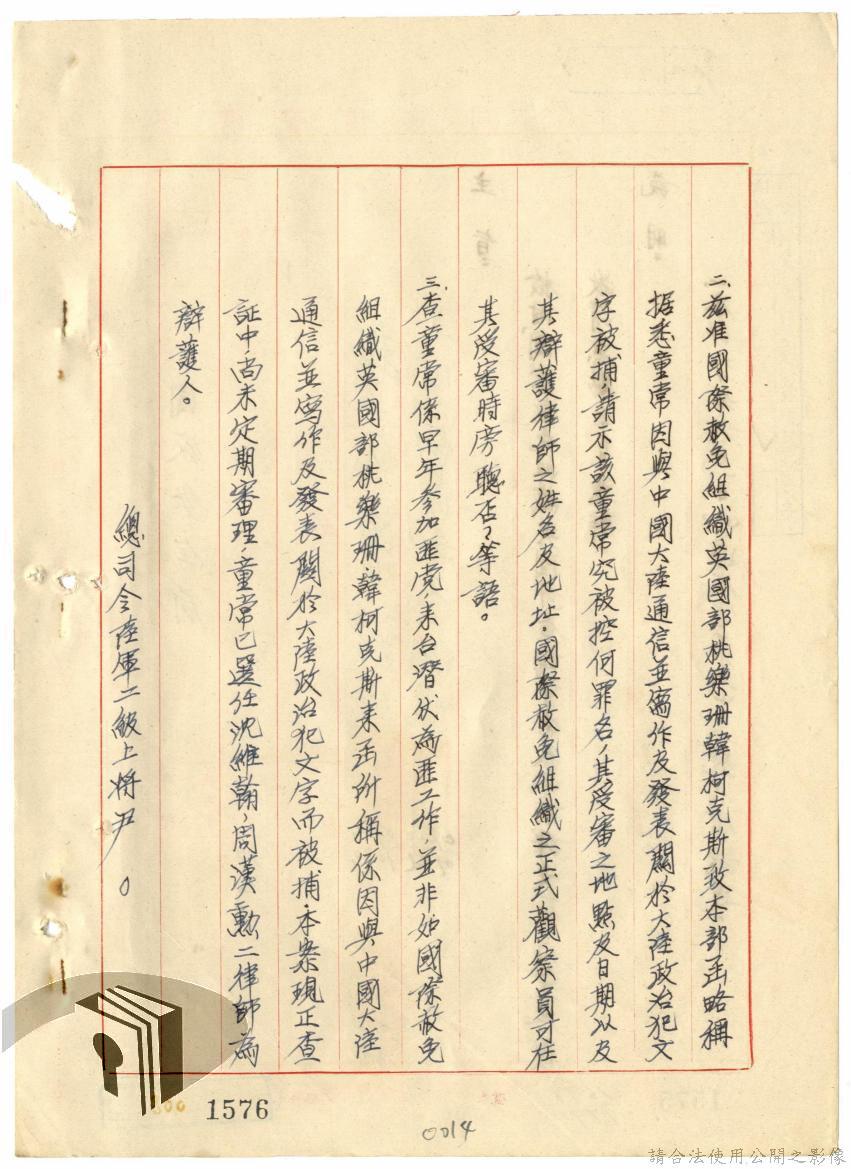 二、茲准國際赦免組織英國部桃樂珊韓柯克斯致本部函略稱
据悉童常因與中國大陸通信並寫作及發表關於大陸政治犯文
字被捕，請示該童常究被控何罪名，其受審之地點及日期以及
其辯護律師之姓名及地址．國際赦免組織之正式觀察員可在
其受審時旁聽否？等語。
三、查童常係早年參加匪党，来台潛伏為匪工作，並非如國際赦免
組織英國部桃樂珊．韓柯克斯来函所稱係因與中國大陸
通信並寫作及發表關於大陸政治犯文字而被捕．本案現正查
証中，尚未定期審理，童常已選任沈維翰，周漢勳二律師為
辯護人。
總司令陸軍二級上將尹〇
1576
0014
請合法使用公開之影像